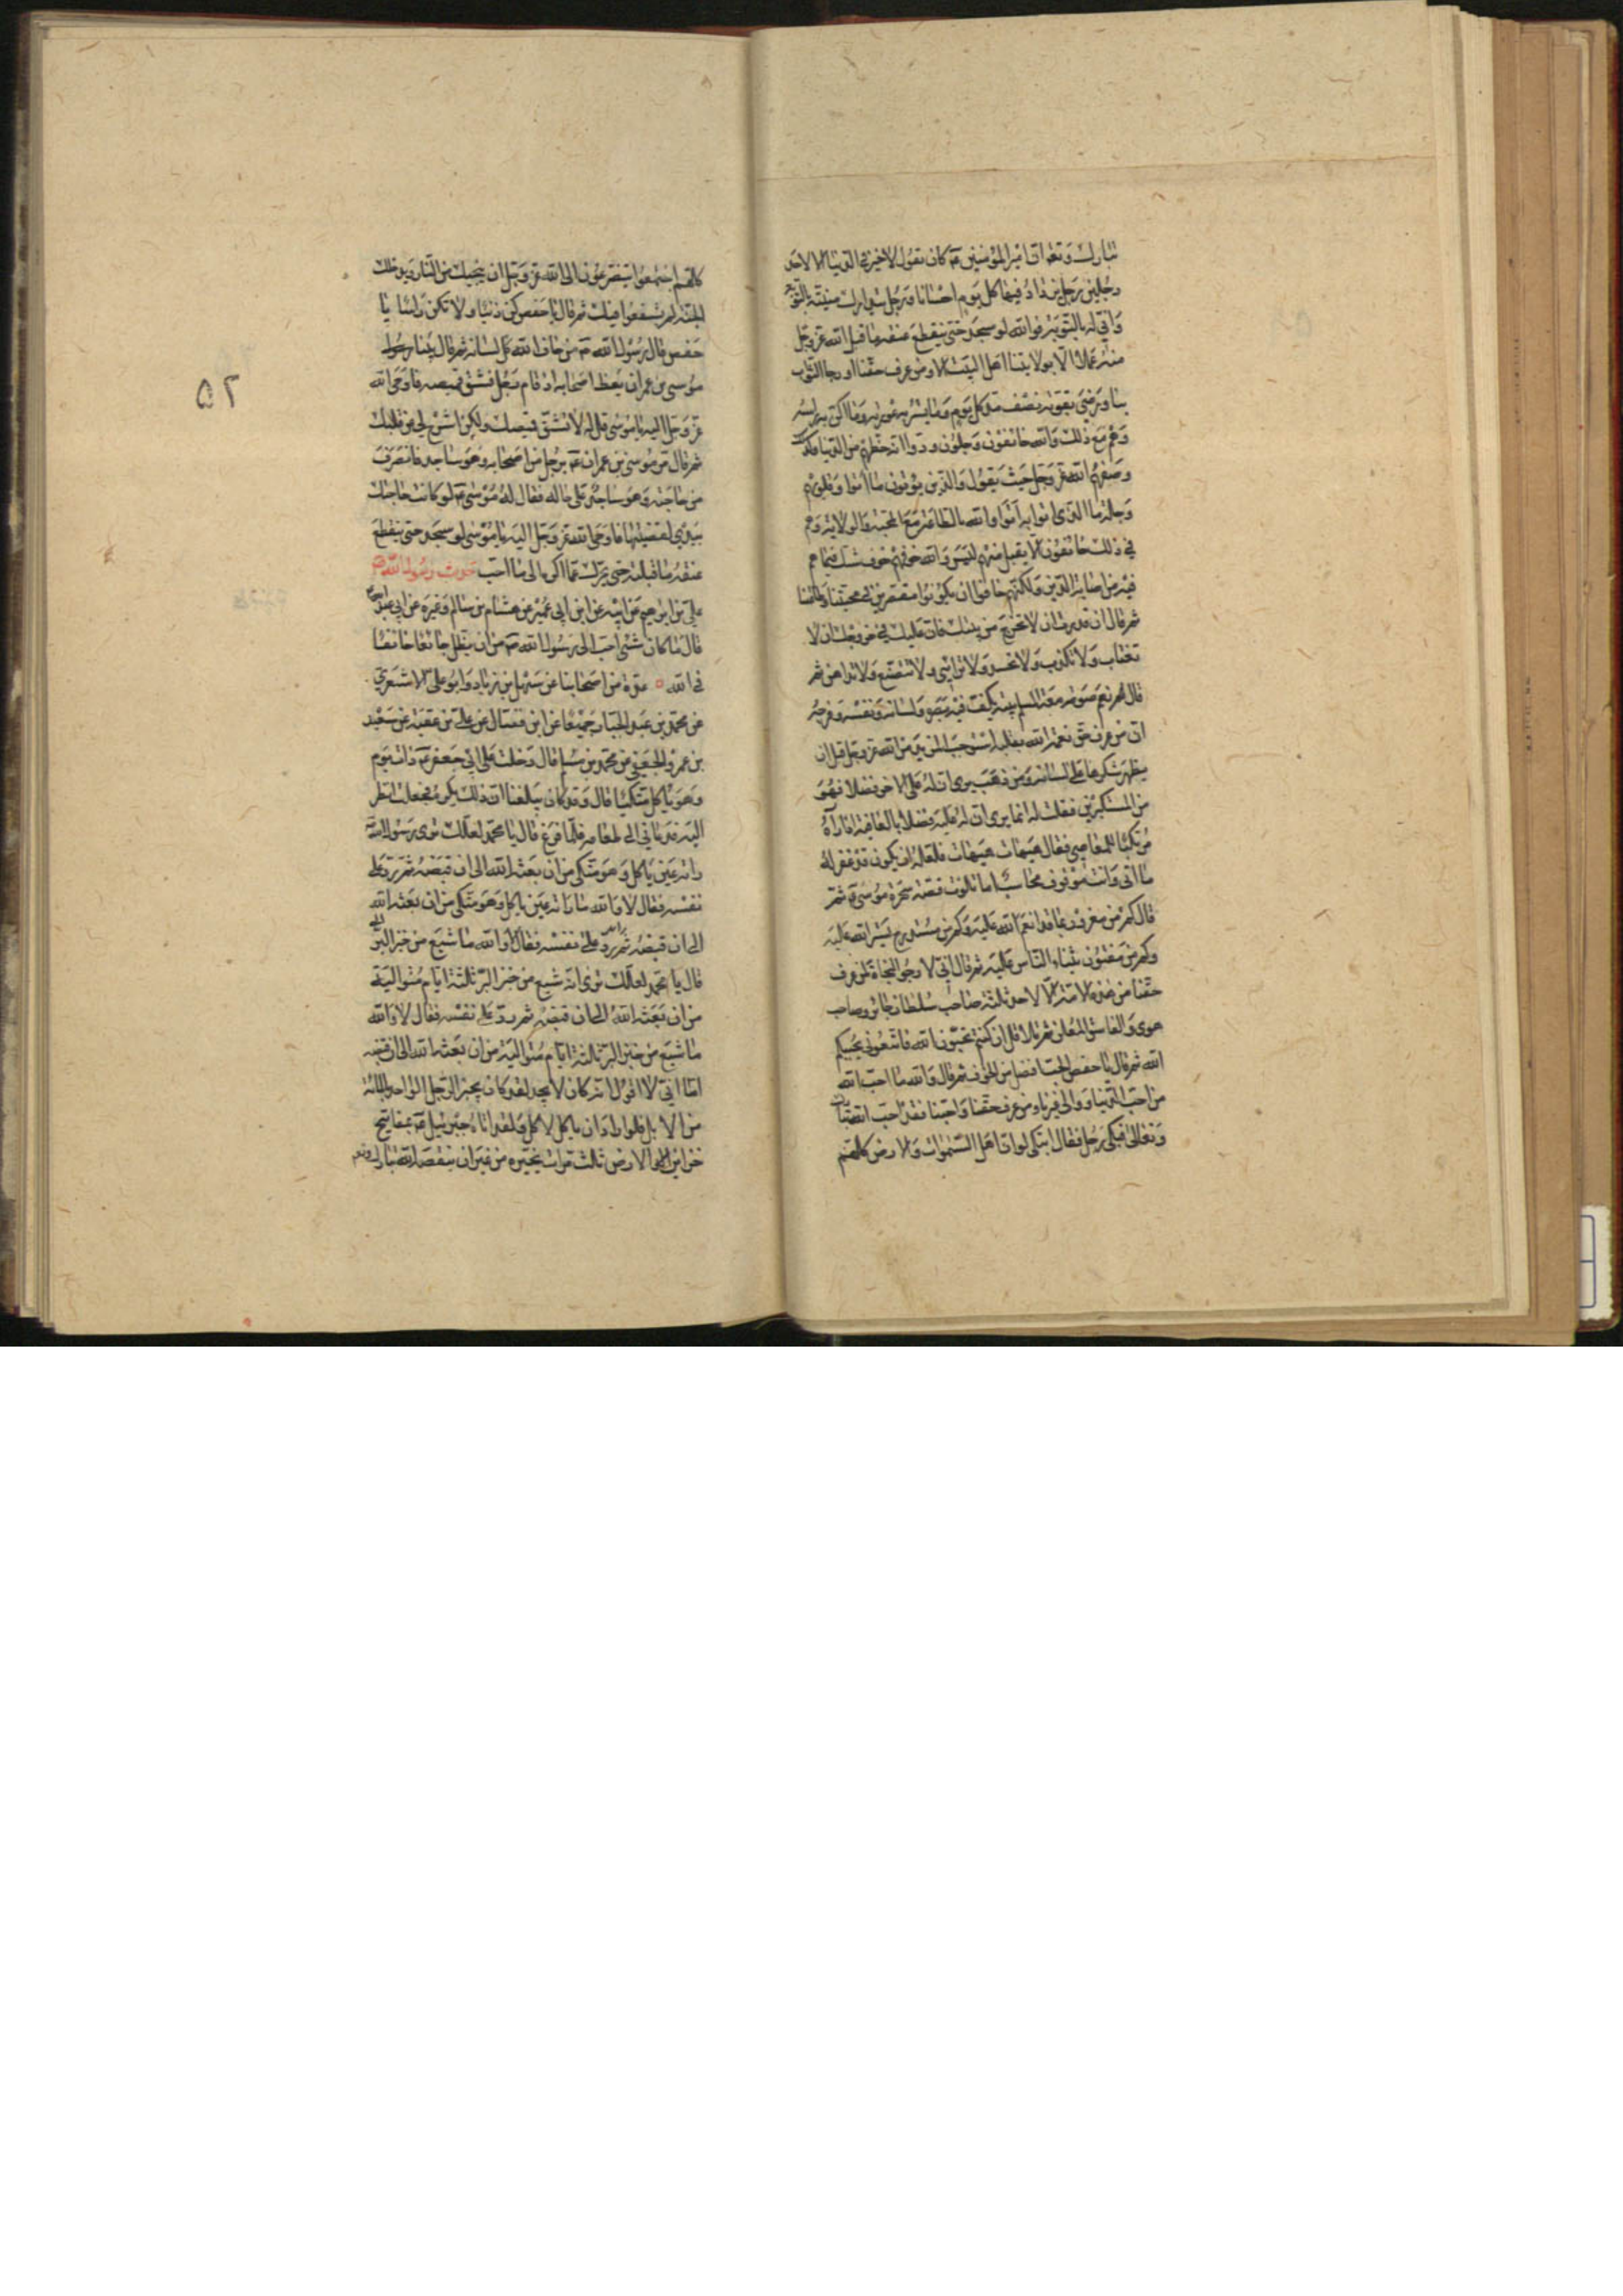 تبارك وتعالى ان امير المؤمنين ع كان يقول لا خير في الدنيا الا لاحد
رجلين رجل يزداد فيها كل يوم احسانا ورجل يتدارك منيته بالتوبة
واني له بالتوبة فوالله لو سجد حتى ينقطع عنقه ما قبل الله عز وجل
منه عملا الا بولايتنا اهل البيت الا ومن عرف حقنا او رجا الثواب
بنا ورضي بقوته نصف مد كل يوم وما يستر به عورته وما اكن به راسه
وهم مع ذلك والله خائفون وجلون ودوا انه حظهم من الدنيا وكذلك
وصفهم الله عز وجل حيث يقول والذين يؤتون ما اتوا وقلوبهم
وجلة ما الذي اتوا به اتوا والله بالطاعة مع المحبة والولاية وهم
في ذلك خائفون الا يقبل منهم ليس والله خوفهم خوف شك فيما هم
فيه من اصابة الدين ولكنهم خافوا ان يكونوا مقصرين في محبتنا وطاعتنا
ثم قال ان قدرت ان لا تخرج من بيتك فان عليك في خروجك ان لا
تغتاب ولا تكذب ولا تحسد ولا ترائي ولا تتصنع ولا تداهن ثم
قال نعم صومعة المسلم بيته يكف فيه بصره ولسانه ونفسه وفرجه
ان من عرف حق نعمة الله بقلبه استوجب المزيد من الله عز وجل قبل ان
يظهر شكرها على لسانه ومن ذهب يرى ان له على الاخر فضلا فهو
من المستكبرين فقلت له انما يرى ان له عليه فضلا بالعافية اذا راه
مرتكبا للمعاصي فقال هيهات هيهات فلعله ان يكون قد غفر له
ما اتى وانت موقوف محاسب اما تلوت قصة سحرة موسى ع ثم
قال كم من مغرور بما قد انعم الله عليه وكم من مستدرج بستر الله عليه
وكم من مفتون بثناء الناس عليه ثم قال اني لارجو النجاة لمن عرف
حقنا من هذه الامة الا لاحد ثلثة صاحب سلطان جائر وصاحب
هوى والفاسق المعلن ثم تلا قل ان كنتم تحبون الله فاتبعوني يحببكم
الله ثم قال يا حفص الحب افضل من الخوف ثم قال والله ما احب الله
من احب الدنيا ووالى غيرنا ومن عرف حقنا واحبنا فقد احب الله تبارك
وتعالى فبكى رجل فقال اتبكي لو ان اهل السموات والارض كلهم
كلهم اجتمعوا يتضرعون الى الله عز وجل ان ينجيك من النار ويدخلك
الجنة لم يشفعوا فيك ثم قال يا حفص كن ذنبا ولا تكن راسا يا
حفص قال رسول الله ص من خاف الله كل لسانه ثم قال بينا رسول
موسى بن عمران يعظ اصحابه اذ قام رجل فشق قميصه فاوحى الله
عز وجل اليه يا موسى قل له لا تشق قميصك ولكن اشرح لي عن قلبك
ثم قال مر موسى بن عمران ع برجل من اصحابه وهو ساجد فانصرف
من حاجته وهو ساجد على حاله فقال له موسى ع لو كانت حاجتك
بيدي لقضيتها فاوحى الله عز وجل اليه يا موسى لو سجد حتى ينقطع
عنقه ما قبلته حتى يتحول عما اكره الى ما احب حديث رسول الله ص
علي بن ابراهيم عن ابيه عن ابن ابي عمير عن هشام بن سالم وغيره عن ابي عبدالله ع
قال ما كان شئ احب الى رسول الله ص من ان يظل جائعا خائفا
في الله ٥ عدة من اصحابنا عن سهل بن زياد وابو علي الاشعري
عن محمد بن عبد الجبار جميعا عن ابن فضال عن علي بن عقبة عن سعيد
بن عمرو الجعفي عن محمد بن مسلم قال دخلت على ابي جعفر ع ذات يوم
وهو ياكل متكئا قال وقد كان يبلغنا ان ذلك يكره فجعلت انظر
اليه فدعاني الى طعامه فلما فرغ قال يا محمد لعلك ترى رسول الله
راته عين ياكل وهو متكئ من ان بعثه الله الى ان قبضه ثم رد على
نفسه فقال لا والله ما راته عين ياكل وهو متكئ من ان بعثه الله
الى ان قبضه ثم رد على نفسه فقال لا والله ما شبع من خبز البر
قال يا محمد لعلك ترى انه شبع من خبز البر ثلثة ايام متوالية
من ان بعثه الله الى ان قبضه ثم رد على نفسه فقال لا والله
ما شبع من خبز البر ثلثة ايام متوالية من ان بعثه الله الى ان قبضه
اما اني لا اقول انه كان لا يجد لقد كان يجيز الرجل الواحد بالمائة
من الابل فلو اراد ان ياكل لاكل ولقد اتاه جبرئيل ع بمفاتيح
خزائن الارض ثلث مرات يخيره من غير ان ينقصه الله تبارك وتعالى
٥٢